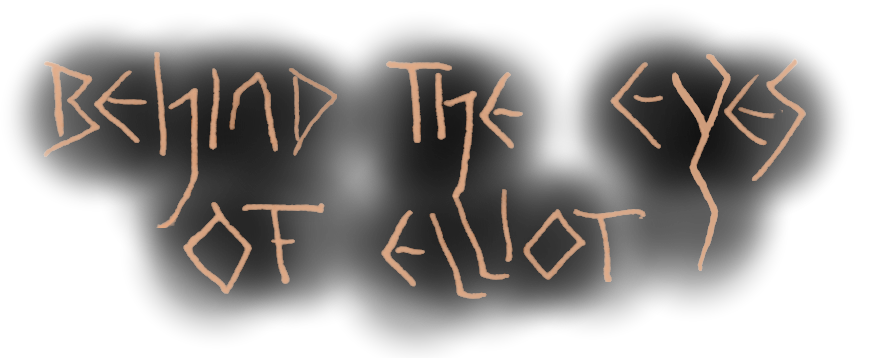 BEhIND ThE EYES
OF ELLIOT